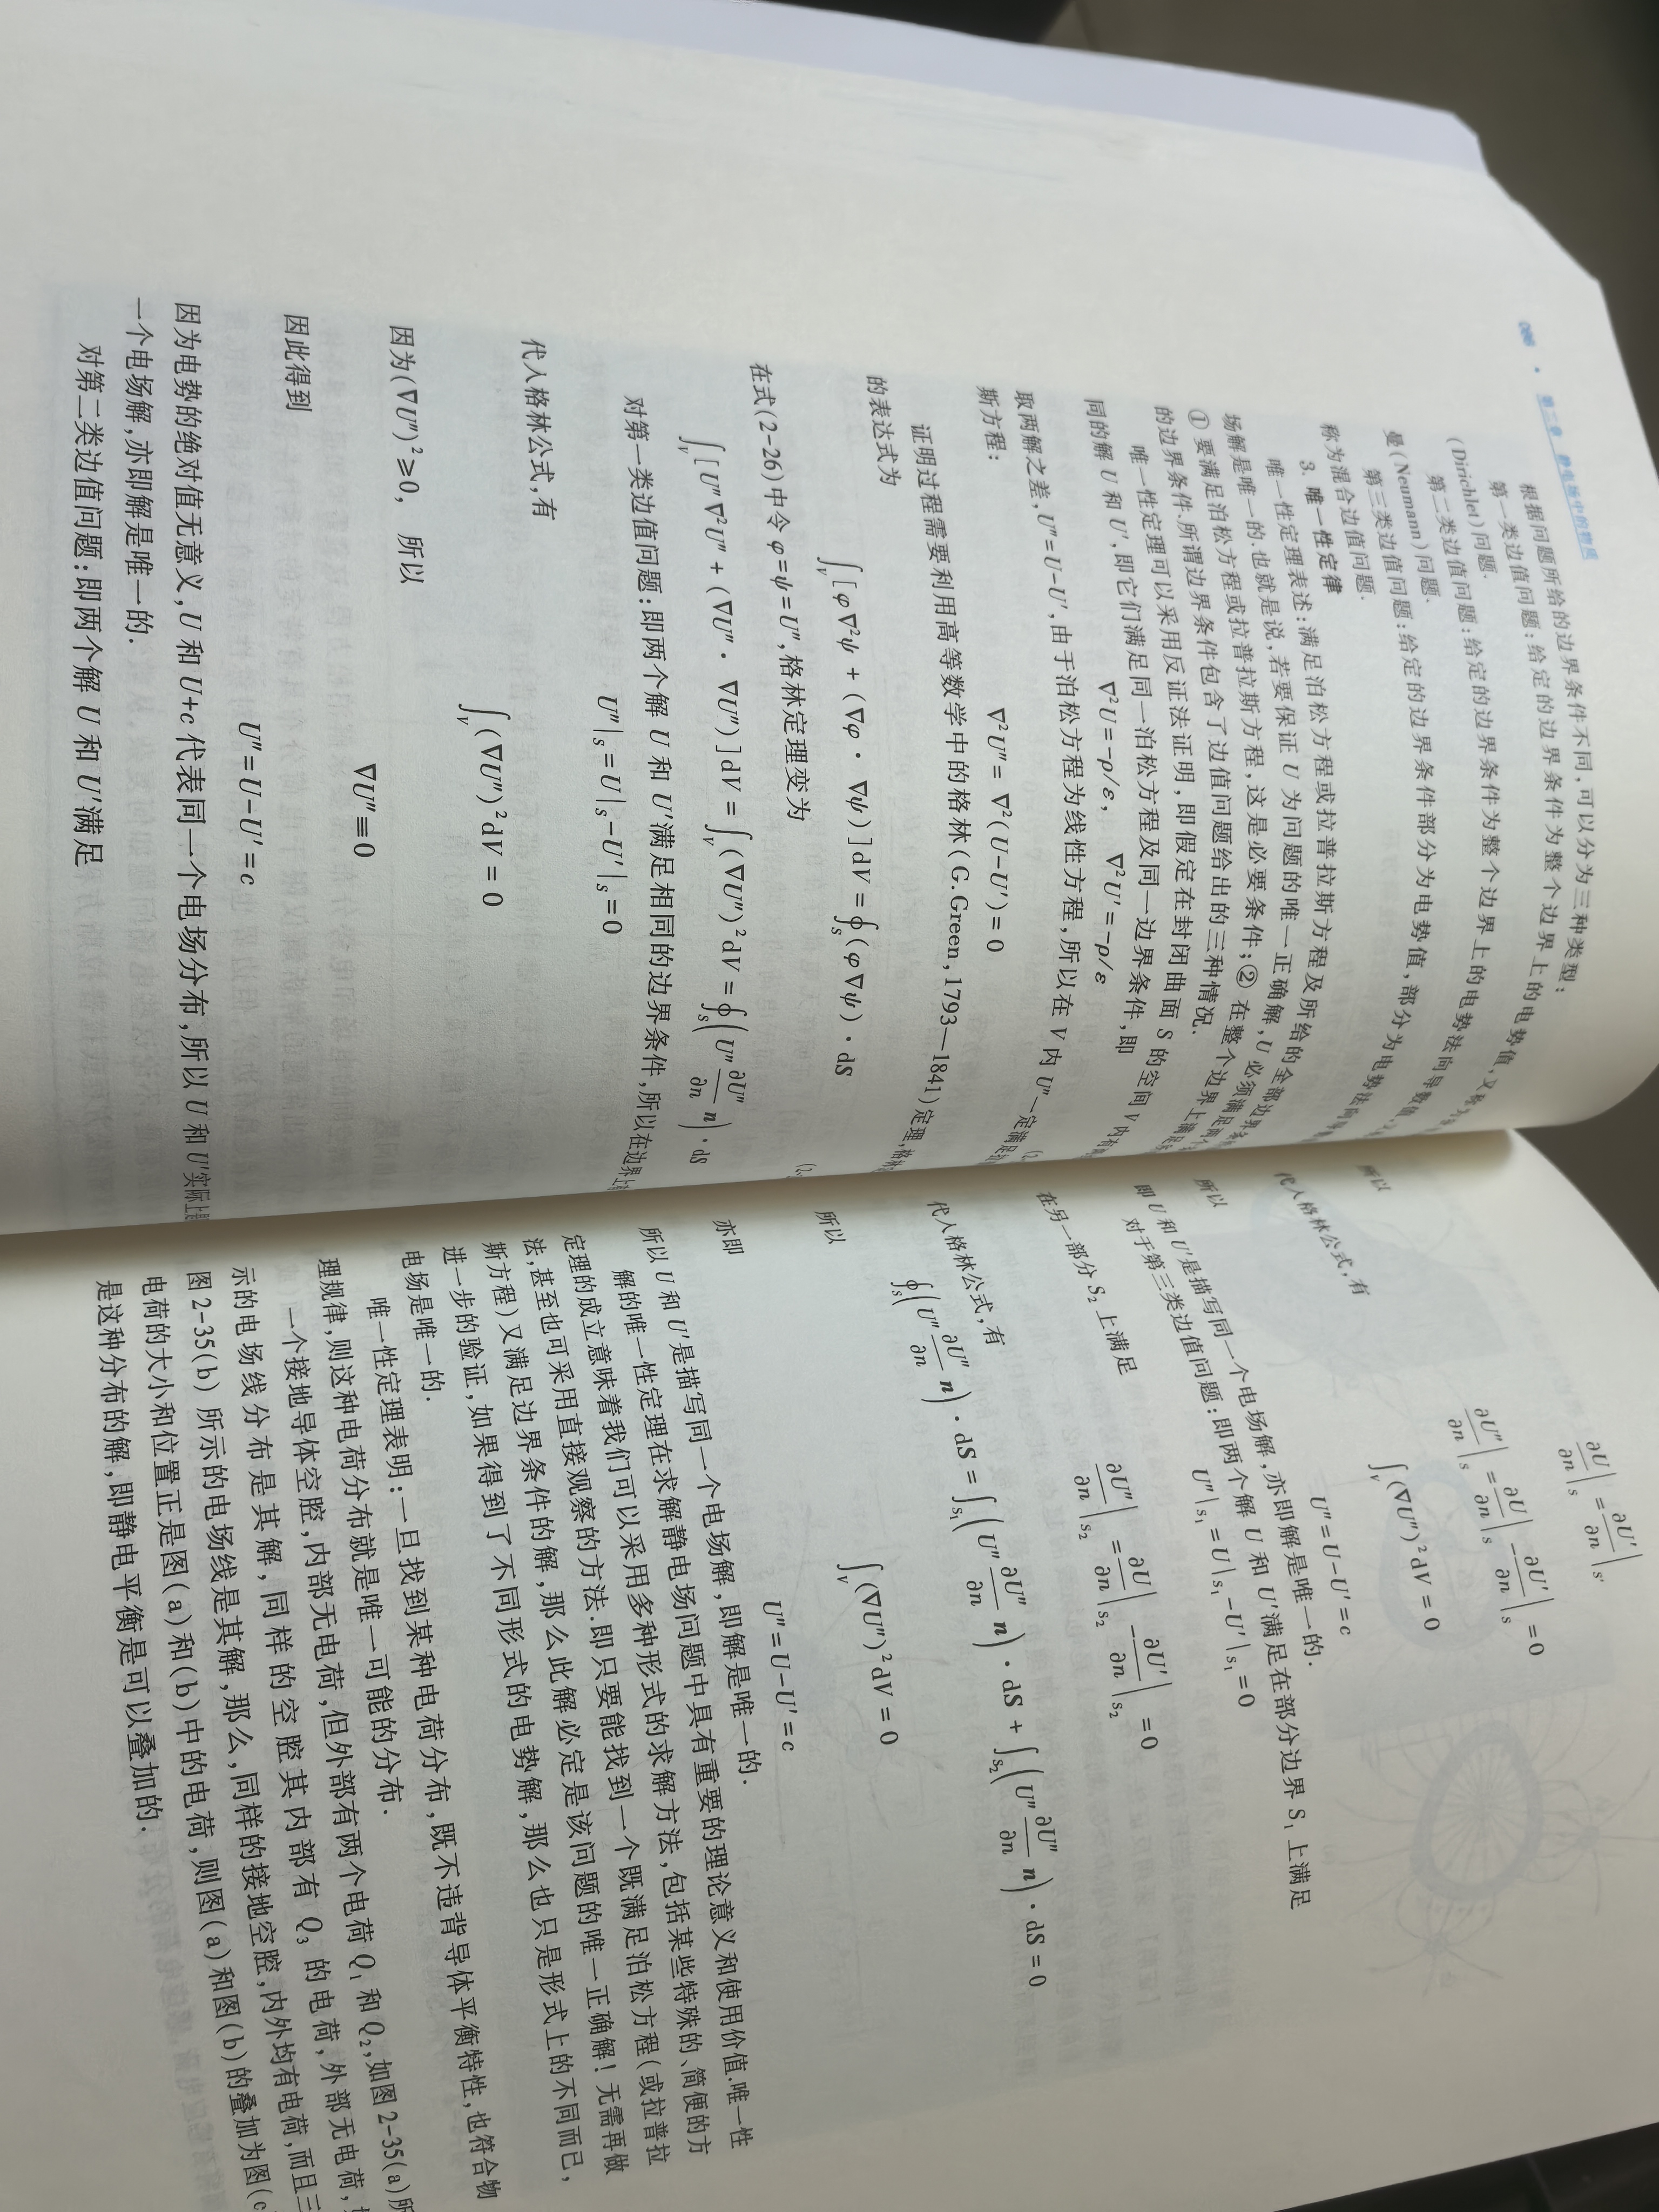 第二章 静电场中的物质
根据问题所给的边界条件不同,可以分为三种类型:
第一类边值问题:给定的边界条件为整个边界上的电势值,又称为
(Dirichlet)问题.
第二类边值问题:给定的边界条件为整个边界上的电势法向导数值,
是(Neumann)问题.
第三类边值问题:给定的边界条件部分为电势值,部分为电势法向
称为混合边值问题.
3. 唯一性定律
唯一性定理表述:满足泊松方程或拉普拉斯方程及所给的全部边界
场解是唯一的.也就是说,若要保证 U 为问题的唯一正确解,U 必须满足两个
① 要满足泊松方程或拉普拉斯方程,这是必要条件;② 在整个边界上满足
的边界条件.所谓边界条件包含了边值问题给出的三种情况.
唯一性定理可以采用反证法证明,即假定在封闭曲面 S 的空间 V 内有
同的解 U 和 U′,即它们满足同一泊松方程及同一边界条件,即
∇²U=-ρ/ε, ∇²U′=-ρ/ε
取两解之差,U″=U-U′,由于泊松方程为线性方程,所以在 V 内 U″一定满足
斯方程:
∇²U″= ∇²(U-U′)=0
证明过程需要利用高等数学中的格林(G.Green,1793—1841)定理,格林
的表达式为
∫_V[φ∇²ψ + (∇φ · ∇ψ)]dV = ∮_S(φ∇ψ) · dS
在式(2-26)中令 φ=ψ=U″,格林定理变为
∫_V[U″∇²U″ + (∇U″ · ∇U″)]dV = ∫_V(∇U″)²dV = ∮_S(U″ ∂U″/∂n n) · dS
对第一类边值问题:即两个解 U 和 U′满足相同的边界条件,所以在边界上
U″|_S = U|_S - U′|_S = 0
代入格林公式,有
∫_V(∇U″)²dV = 0
因为(∇U″)²≥0, 所以
∇U″≡0
因此得到
U″=U-U′=c
因为电势的绝对值无意义,U 和 U+c 代表同一个电场分布,所以 U 和 U′实际上是
一个电场解,亦即解是唯一的.
对第二类边值问题:即两个解 U 和 U′满足
∂U/∂n|_S = ∂U′/∂n|_S′
所以
∂U″/∂n|_S = ∂U/∂n|_S - ∂U′/∂n|_S = 0
代入格林公式,有
∫_V(∇U″)²dV = 0
所以
U″=U-U′=c
即 U 和 U′是描写同一个电场解,亦即解是唯一的.
对于第三类边值问题:即两个解 U 和 U′满足在部分边界 S₁ 上满足
U″|_S₁ = U|_S₁ - U′|_S₁ = 0
在另一部分 S₂ 上满足
∂U″/∂n|_S₂ = ∂U/∂n|_S₂ - ∂U′/∂n|_S₂ = 0
代入格林公式,有
∮_S(U″ ∂U″/∂n n) · dS = ∫_S₁(U″ ∂U″/∂n n) · dS + ∫_S₂(U″ ∂U″/∂n n) · dS = 0
所以
∫_V(∇U″)²dV = 0
亦即
U″=U-U′=c
所以 U 和 U′是描写同一个电场解,即解是唯一的.
解的唯一性定理在求解静电场问题中具有重要的理论意义和使用价值.唯一性
定理的成立意味着我们可以采用多种形式的求解方法,包括某些特殊的、简便的方
法,甚至也可采用直接观察的方法.即只要能找到一个既满足泊松方程(或拉普拉
斯方程)又满足边界条件的解,那么此解必定是该问题的唯一正确解!无需再做
进一步的验证,如果得到了不同形式的电势解,那么也只是形式上的不同而已,
电场是唯一的.
唯一性定理表明:一旦找到某种电荷分布,既不违背导体平衡特性,也符合物
理规律,则这种电荷分布就是唯一可能的分布.
一个接地导体空腔,内部无电荷,但外部有两个电荷 Q₁ 和 Q₂,如图 2-35(a)所
示的电场线分布是其解,同样的空腔其内部有 Q₃ 的电荷,外部无电荷,
图 2-35(b)所示的电场线是其解,那么,同样的接地空腔,内外均有电荷,而且三
电荷的大小和位置正是图(a)和(b)中的电荷,则图(a)和图(b)的叠加为图(c
是这种分布的解,即静电平衡是可以叠加的.